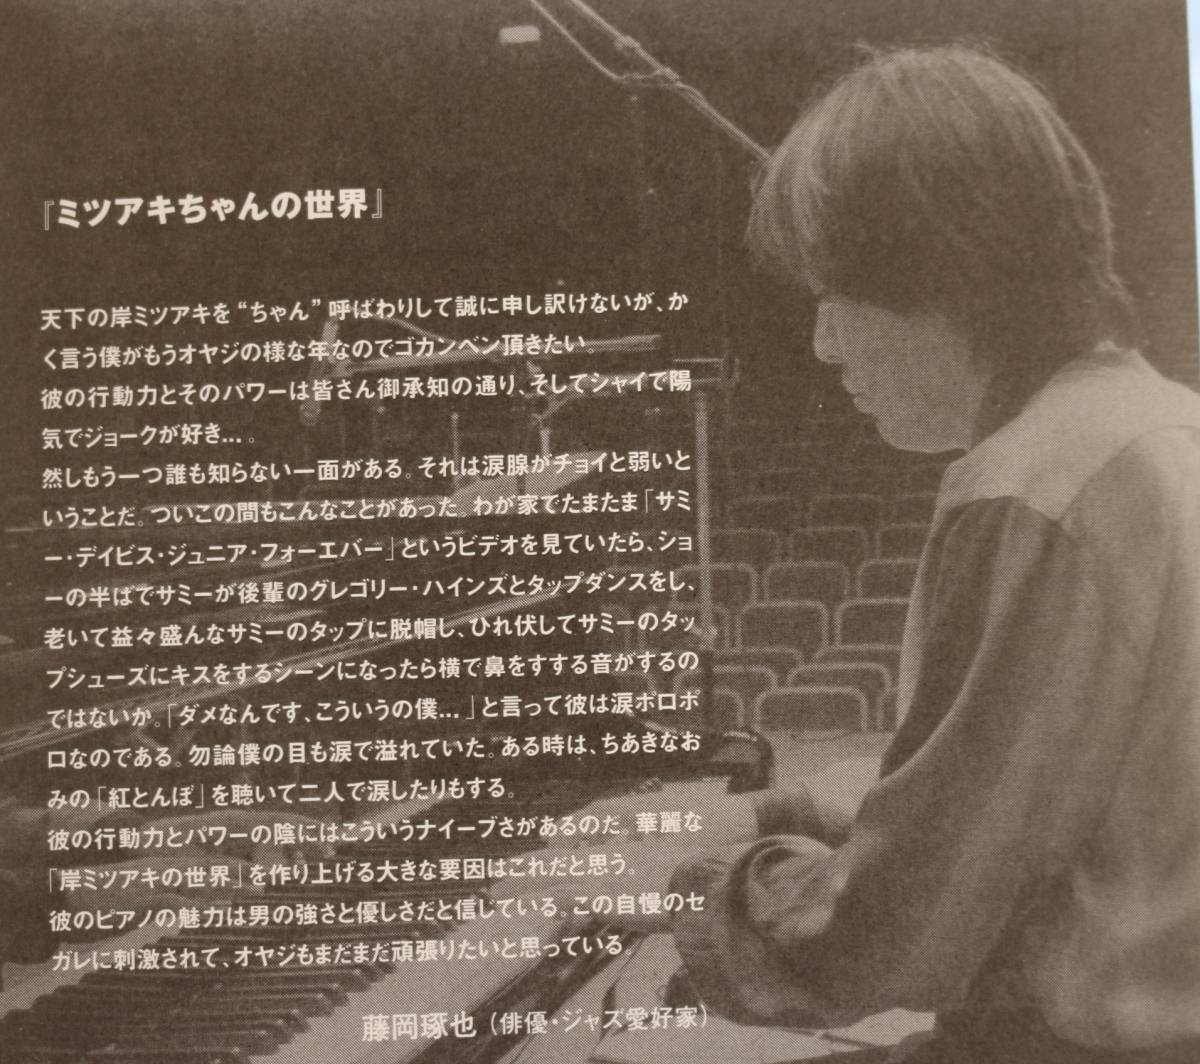 『ミツアキちゃんの世界』
天下の岸ミツアキを“ちゃん”呼ばわりして誠に申し訳けないが、か
く言う僕がもうオヤジの様な年なのでゴカンベン頂きたい。
彼の行動力とそのパワーは皆さん御承知の通り、そしてシャイで陽
気でジョークが好き…。
然しもう一つ誰も知らない一面がある。それは涙腺がチョイと弱いと
いうことだ。ついこの間もこんなことがあった。わが家でたまたま「サミ
ー・デイビス・ジュニア・フォーエバー」というビデオを見ていたら、ショ
ーの半ばでサミーが後輩のグレゴリー・ハインズとタップダンスをし、
老いて益々盛んなサミーのタップに脱帽し、ひれ伏してサミーのタッ
プシューズにキスをするシーンになったら横で鼻をすする音がするの
ではないか。「ダメなんです、こういうの僕…」と言って彼は涙ポロポ
ロなのである。勿論僕の目も涙で溢れていた。ある時は、ちあきなお
みの「紅とんぼ」を聴いて二人で涙したりもする。
彼の行動力とパワーの陰にはこういうナイーブさがあるのだ。華麗な
「岸ミツアキの世界」を作り上げる大きな要因はこれだと思う。
彼のピアノの魅力は男の強さと優しさだと信じている。この自慢のセ
ガレに刺激されて、オヤジもまだまだ頑張りたいと思っている。
藤岡琢也（俳優・ジャズ愛好家）